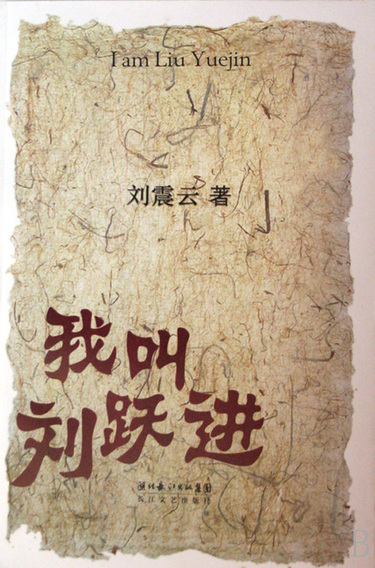 I am Liu Yuejin
刘震云 著
我叫
刘跃进
湖北长江出版集团
长江文艺出版社
B